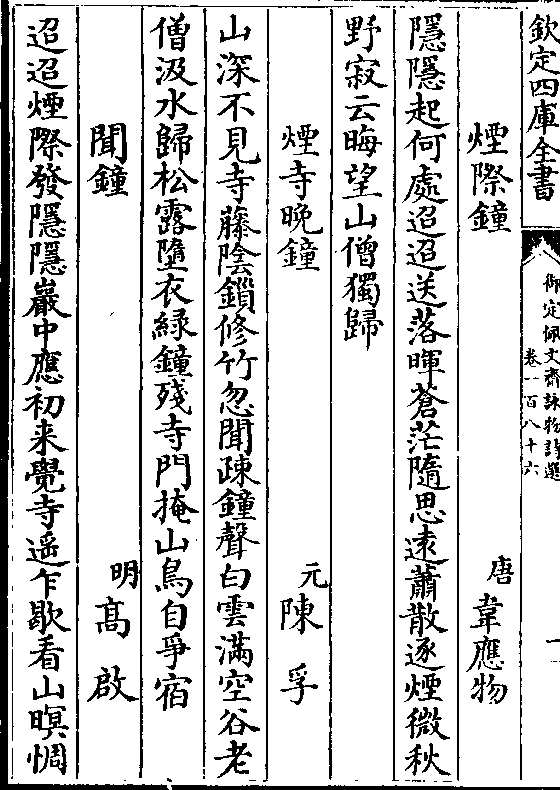 欽定四庫全書
御定佩文齋詠物詩選
卷一百八十六
煙際鐘
唐 韋應物
隱隱起何處迢迢送落暉蒼茫隨思遠蕭散逐煙微秋
野寂云晦望山僧獨歸
煙寺晚鐘
元 陳孚
山深不見寺藤陰鎖修竹忽聞疎鐘聲白雲滿空谷老
僧汲水歸松露墮衣緑鐘殘寺門掩山鳥自爭宿
聞鐘
明 髙啟
迢迢煙際發隱隱巖中應初来覺寺遥乍歇看山暝惆